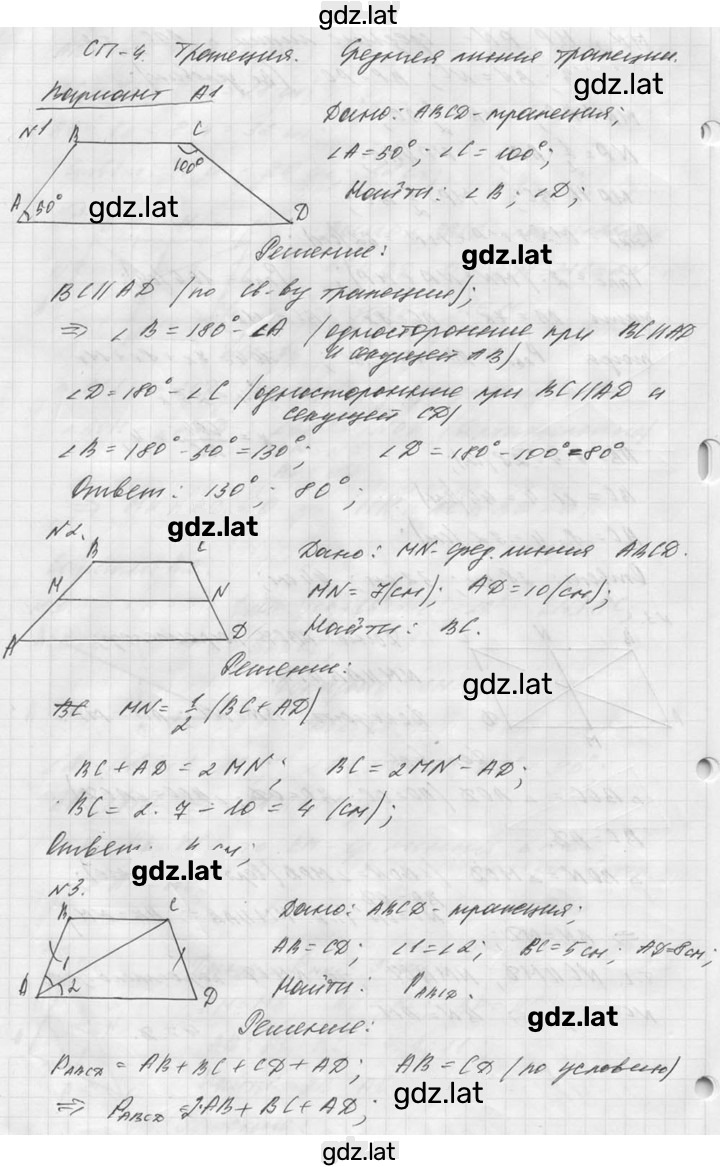 gdz.lat
СП-4. Трапеция. Средняя линия трапеции.
gdz.lat
Вариант А1
№1
B C
100°
A 50° D
gdz.lat
Дано: ABCD - трапеция;
∠A = 50°; ∠C = 100°;
Найти: ∠B; ∠D;
Решение:
gdz.lat
BC||AD (по св-ву трапеции);
⇒ ∠B = 180° - ∠A (односторонние при BC||AD
и секущей AB)
∠D = 180° - ∠C (односторонние при BC||AD и
секущей CD)
∠B = 180° - 50° = 130°; ∠D = 180° - 100° = 80°
Ответ: 130°; 80°;
gdz.lat
№2.
B C
M N
A D
Дано: MN - сред. линия ABCD.
MN = 7(см); AD = 10(см);
Найти: BC.
Решение:
gdz.lat
BC MN = 1/2 (BC + AD)
BC + AD = 2MN; BC = 2MN - AD;
BC = 2 · 7 - 10 = 4 (см);
Ответ. 4 см;
gdz.lat
№3.
B C
1
A 2 D
Дано: ABCD - трапеция;
AB = CD; ∠1 = ∠2; BC = 5 см; AD = 8 см;
Найти: P ABCD.
Решение:
gdz.lat
P ABCD = AB + BC + CD + AD; AB = CD (по условию)
gdz.lat
⇒ P ABCD = 2·AB + BC + AD;
gdz.lat